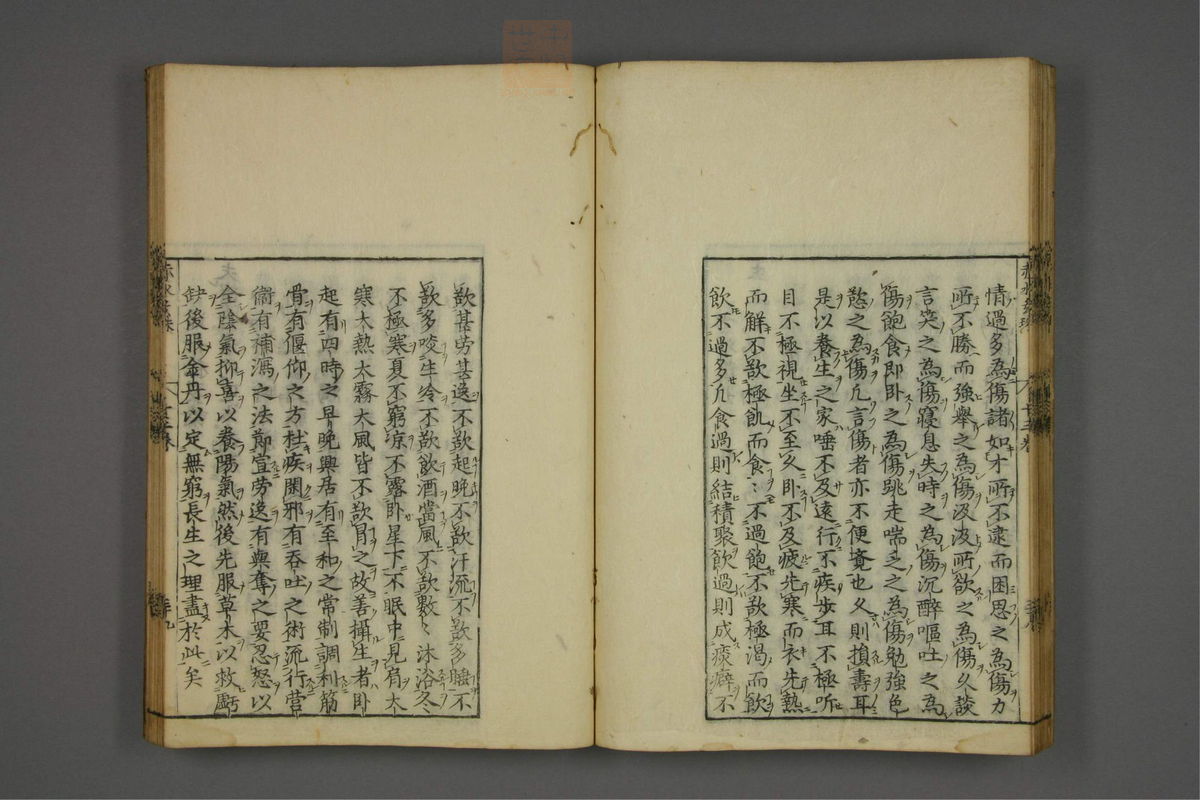 情過多為傷諸如才所不逮而困思之為傷力
所不勝而強舉之為傷汲汲所欲之為傷久談
言笑之為傷寢息失時之為傷沉醉嘔吐之為
傷飽食即卧之為傷跳走喘乏之為傷勉強色
慾之為傷凡言傷者亦不便覺也久則損壽耳
是以養生之家唾不及遠行不疾步耳不極听
目不極視坐不至久卧不及疲先寒而衣先熱
而解不欲極飢而食〻不過飽不欲極渴而飲
飲不過多凡食過則結積聚飲過則成痰癖不
欲甚勞甚逸不欲起晚不欲汗流不欲多睡不
欲多啖生冷不欲飲酒當風不欲數〻沐浴冬
不極寒夏不窮凉不露卧星下不眠中見肩大
寒大熱大霧大風皆不欲冐之故善攝生者卧
起有四時之早晚興居有至和之常制調利筋
骨有偃仰之方杜疾閑邪有吞吐之術流行营
衛有補瀉之法節宣勞逸有與奪之要忍怒以
全陰氣抑喜以養陽氣然後先服草木以救虧
缺後服金丹以定無窮長生之理盡於此矣